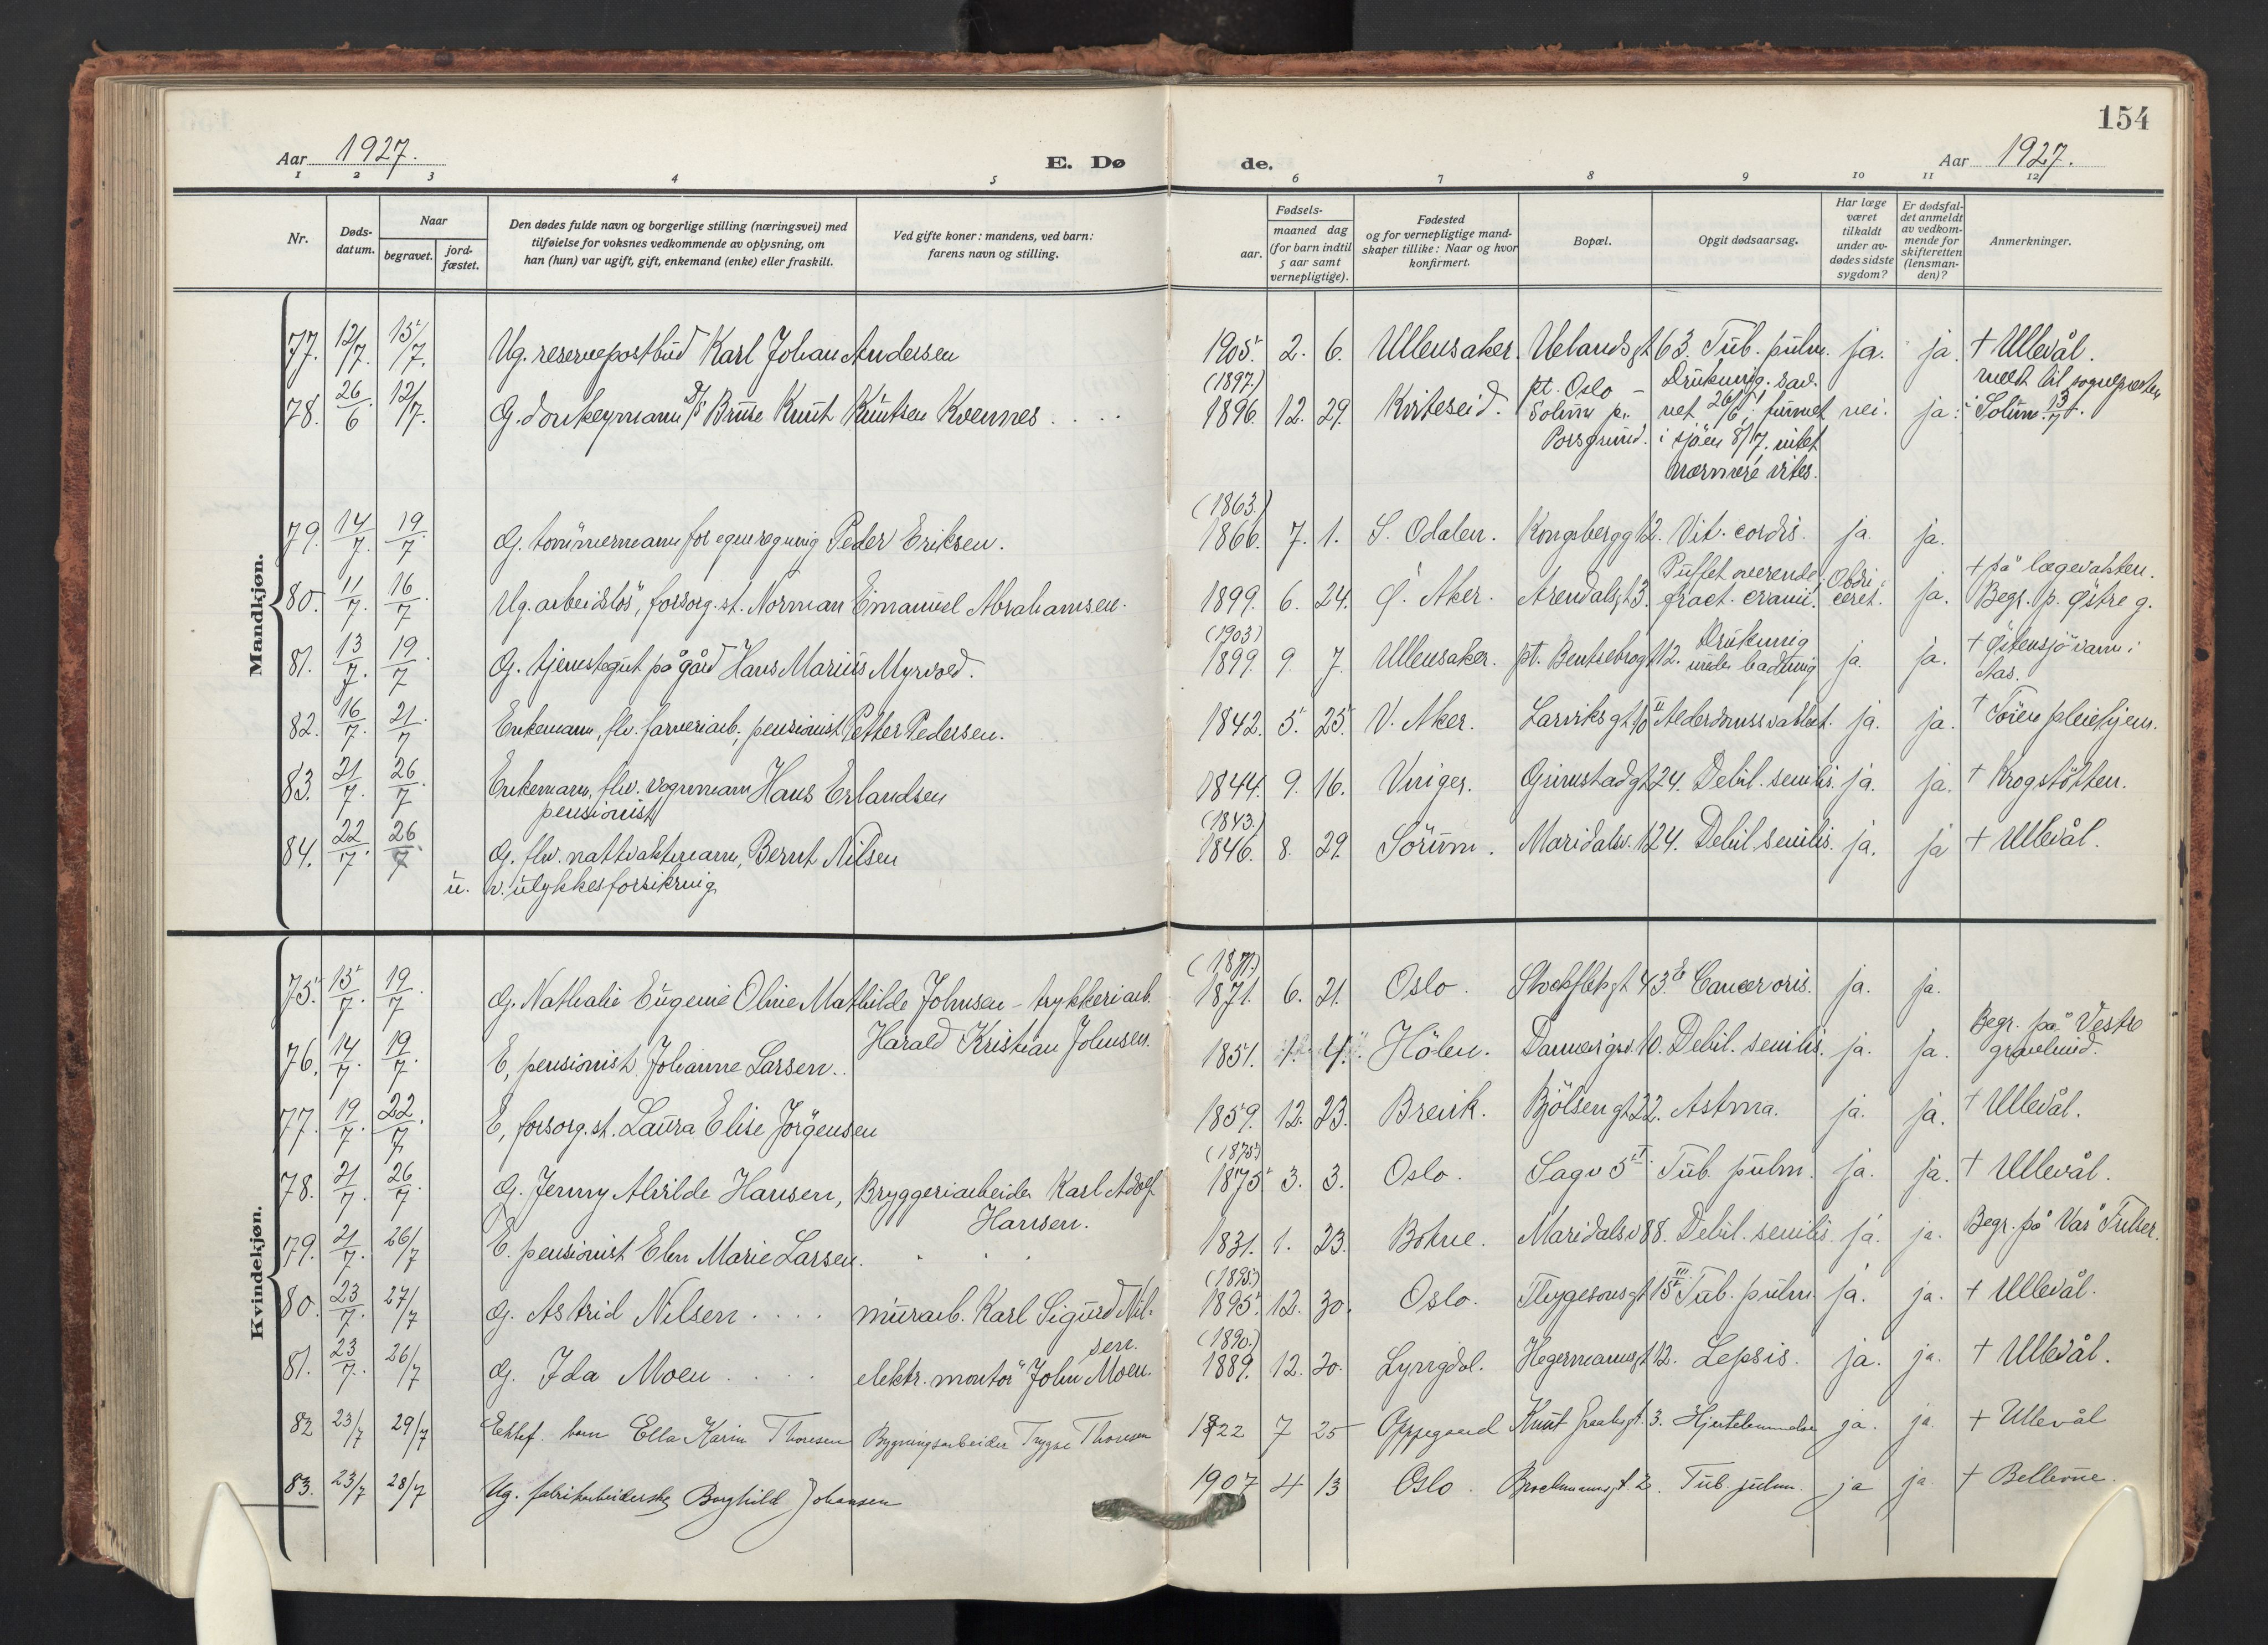 154
Aar 1927. E. Dø de. Aar 1927.
1 2 3 4 5 6 7 8 9 10 11 12
Nr.
Døds-
datum.
Naar
begravet.
jord-
fæstet.
Den dødes fulde navn og borgerlige stilling (næringsvei) med
tilføielse for voksnes vedkommende av oplysning, om
han (hun) var ugift, gift, enkemand (enke) eller fraskilt.
Ved gifte koner: mandens, ved barn:
farens navn og stilling.
aar.
Fødsels-
maaned dag
(for barn indtil
5 aar samt
vernepligtige).
Fødested
og for vernepligtige mand-
skaper tillike: Naar og hvor
konfirmert.
Bopæl.
Opgit dødsaarsag.
Har læge
været
tilkaldt
under av-
dødes sidste
sygdom?
Er dødsfal-
det anmeldt
av vedkom-
mende for
skifteretten
(lensman-
den)?
Anmerkninger.
Mandkjøn.
77. 12/7. 15/7. Ug. reservepostbud Karl Johan Andersen 1905. 2. 6. Ullensaker. Uelandsgt 63. Tub. pulm. ja. ja. † Ullevål.
(1897.) pt. Oslo – Drukning. sav- meldt til sognepresten
78. 26/6. 12/7. G. donkeymann D/S Bruse Knut Knutsen Kvennes . . . 1896. 12. 29. Kviteseid. Solum p. net 26/6; funnet nei. ja. Solum 13/7 t.
Porsgrund. i sjöen 8/7, intet
nærmere vites.
(1863.)
79. 14/7. 19/7 G. tömmermann for egen regning Peder Eriksen. 1866. 7. 1. S. Odalen. Kongsbergg 12. Vit. cordis. ja. ja.
Puffet overende; Obdu- † på lægevakten.
80. 11/7. 16/7 Ug. arbeidslös, forsorg.st. Norman Emanuel Abrahamsen. 1899. 6. 24. Ø. Aker. Arendalsgt 3. fract. cranii. ceret. ja. Begr. p. Østre g.
(1903) Drukning † Østensjövann i
81. 13/7. 19/7 G. tjenstegut på gård Hans Marius Myrvold. 1899. 9. 7. Ullensaker. pt. Bentsebrogt 12. under badning ja. ja. Aas.
82. 16/7. 21/7 Enkemann, flv. farveriarb., pensionist Petter Pedersen. 1842. 5. 25. V. Aker. Larviksgt 10 II Alderdomssvakhet. ja. ja. † Töien pleiehjem.
83. 21/7. 26/7 Enkemann, flv. vognmann Hans Erlandsen 1844. 9. 16. Vinger. Grimstadgt 24. Debil. senilis. ja. ja. † Krogstötten.
pensionist
(1843.)
84. 22/7. 26/7 G. flv. nattvaktmann, Bernt Nilsen 1846. 8. 29. Sörum. Maridalsv. 124. Debil. senilis. ja. ja † Ullevål.
u. v. ulykkesforsikring
Kvindekjøn.
(1871.)
75. 15/7. 19/7 G. Nathalie Eugenie Oline Mathilde Johnsen – trykkeriarb. 1871. 6. 21. Oslo. Stockflethgt 43. E Cancer oris. ja. ja.
Harald Kristian Johnsen. Begr. på Vestre
76. 14/7 19/7. E, pensionist Johanne Larsen. 1851. 1. 4. Hölen. Damergrd. 10. Debil. senilis. ja. ja. gravlund.
77. 19/7. 22/7. E, forsorg.st. Laura Elise Jörgensen 1859. 12. 23. Brevik. Bjölsengt 22. Astma. ja. ja. † Ullevål.
(1875)
78. 21/7. 26/7. G. Jenny Alvilde Hansen, Bryggeriarbeider Karl Adolf 1875 3. 3. Oslo. Sagv 5 II. Tub. pulm. ja. ja. † Ullevål.
Hansen.
79. 21/7. 26/7 E. pensionist Elen Marie Larsen. 1831. 1. 23. Bokne. Maridalsv 88. Debil. senilis ja. ja. Begr. på Vår Frelser.
(1895.)
80. 23/7. 27/7 G. Astrid Nilsen . . . . murarb. Karl Sigurd Nil- 1895. 12. 30. Oslo. Thygesonsgt 15 III Tub. pulm. ja. ja. † Ullevål.
sen. (1890.)
81. 23/7. 26/7 G. Ida Moen . . . . elektr. montör John Moen. 1889. 12. 20. Lyngdal. Hegermannsgt 12. Sepsis. ja. ja. † Ullevål.
82 23/7 29/7 Ektef. barn Ella Karin Thoresen Bygningsarbeider Trygve Thoresen 1922 7 25 Oppegaard Knut Graahsgt. 3. Hjertelammelse ja. ja † Ullevål
83. 23/7 28/7 Ug. fabrikarbeiderske Borghild Johansen 1907 4 13 Oslo. Brochmannsgt. 2. Tub. pulm. ja ja † Bellevue.